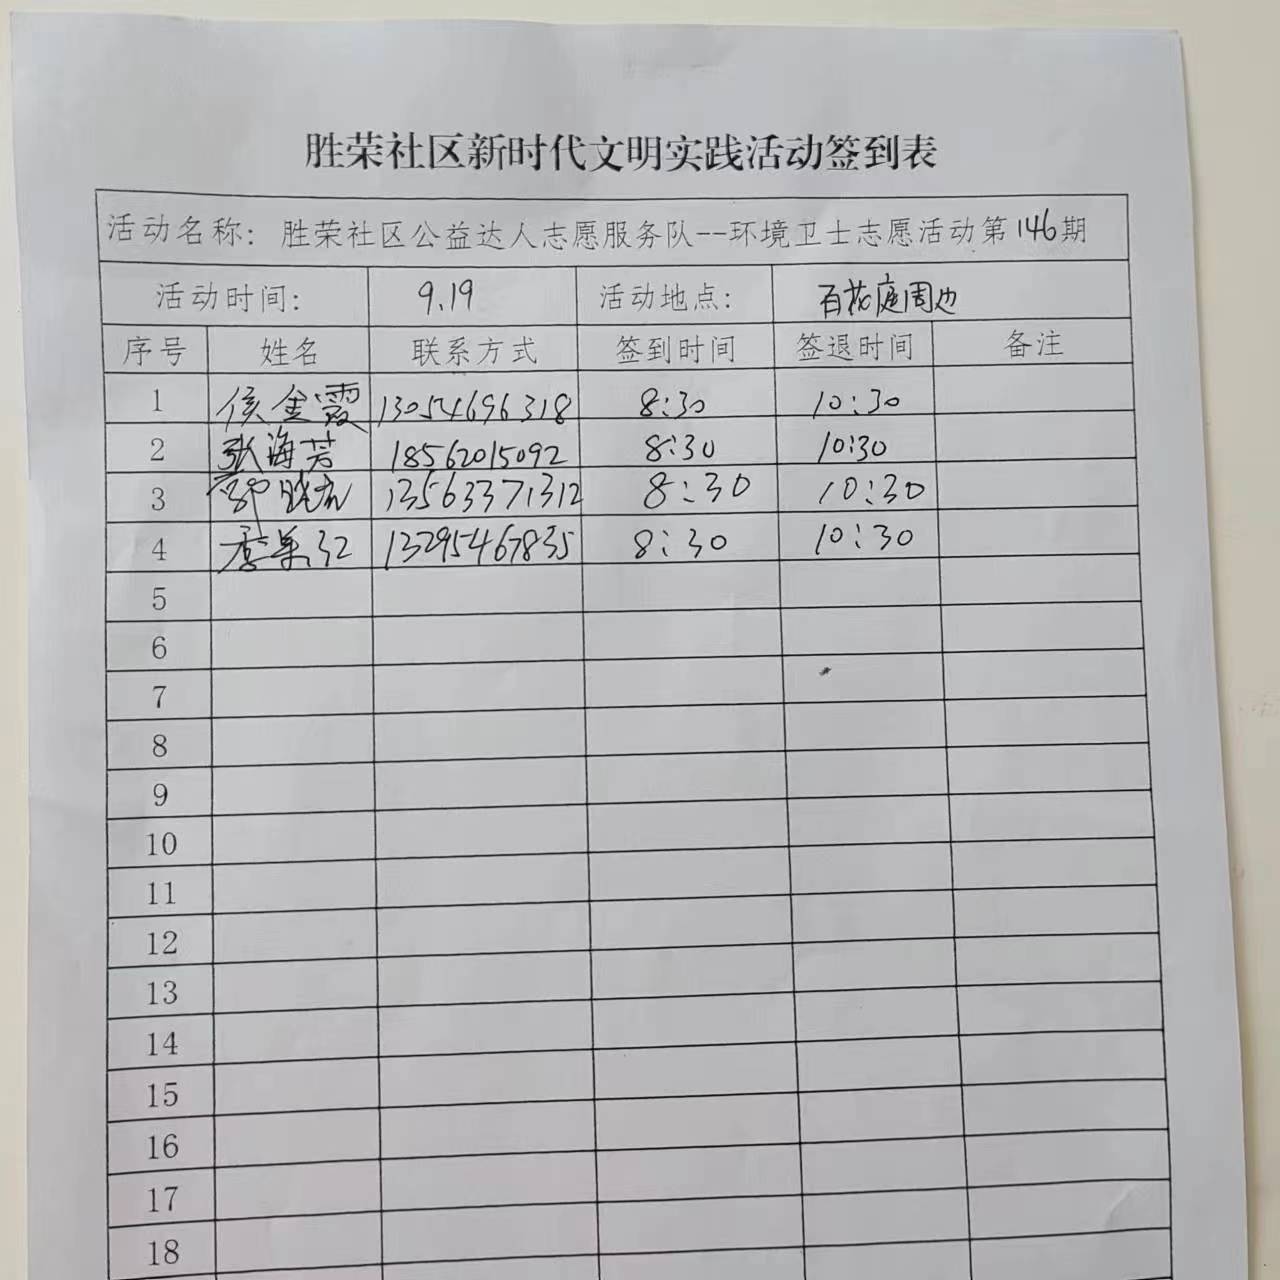 胜荣社区新时代文明实践活动签到表
活动名称：胜荣社区公益达人志愿服务队--环境卫士志愿活动第146期
活动时间： 9.19 活动地点： 百花庭周边
序号 姓名 联系方式 签到时间 签退时间 备注
1 侯金霞 13054696318 8:30 10:30
2 张海芳 18562015092 8:30 10:30
3 13563371312 8:30 10:30
4 13295467835 8:30 10:30
5
6
7
8
9
10
11
12
13
14
15
16
17
18